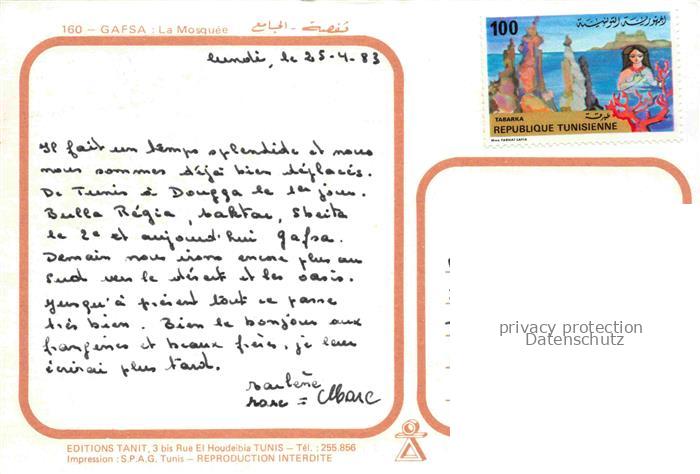 160 – GAFSA : La Mosquée قفصة - الجامع
lundi, le 25-4-83
Il fait un temps splendide et nous
nous sommes déjà bien déplacés.
De Tunis à Dougga le 1er jour.
Bulla Régia, Maktar, Sbeitla
le 2e et aujourd'hui Gafsa.
Demain nous irons encore plus au
Sud vers le désert et les oasis.
Jusqu'à présent tout ce passe
très bien. Bien le bonjour aux
frangines et beaux frères, je leur
écrirai plus tard.
Marlène
Marc = Marc
100
الجمهورية التونسية
TABARKA طبرقة
REPUBLIQUE TUNISIENNE
Mme FARHAT SAFIA
privacy protection
Datenschutz
EDITIONS TANIT, 3 bis Rue El Houdeibia TUNIS – Tél. : 255.856
Impression : S.P.A.G. Tunis – REPRODUCTION INTERDITE